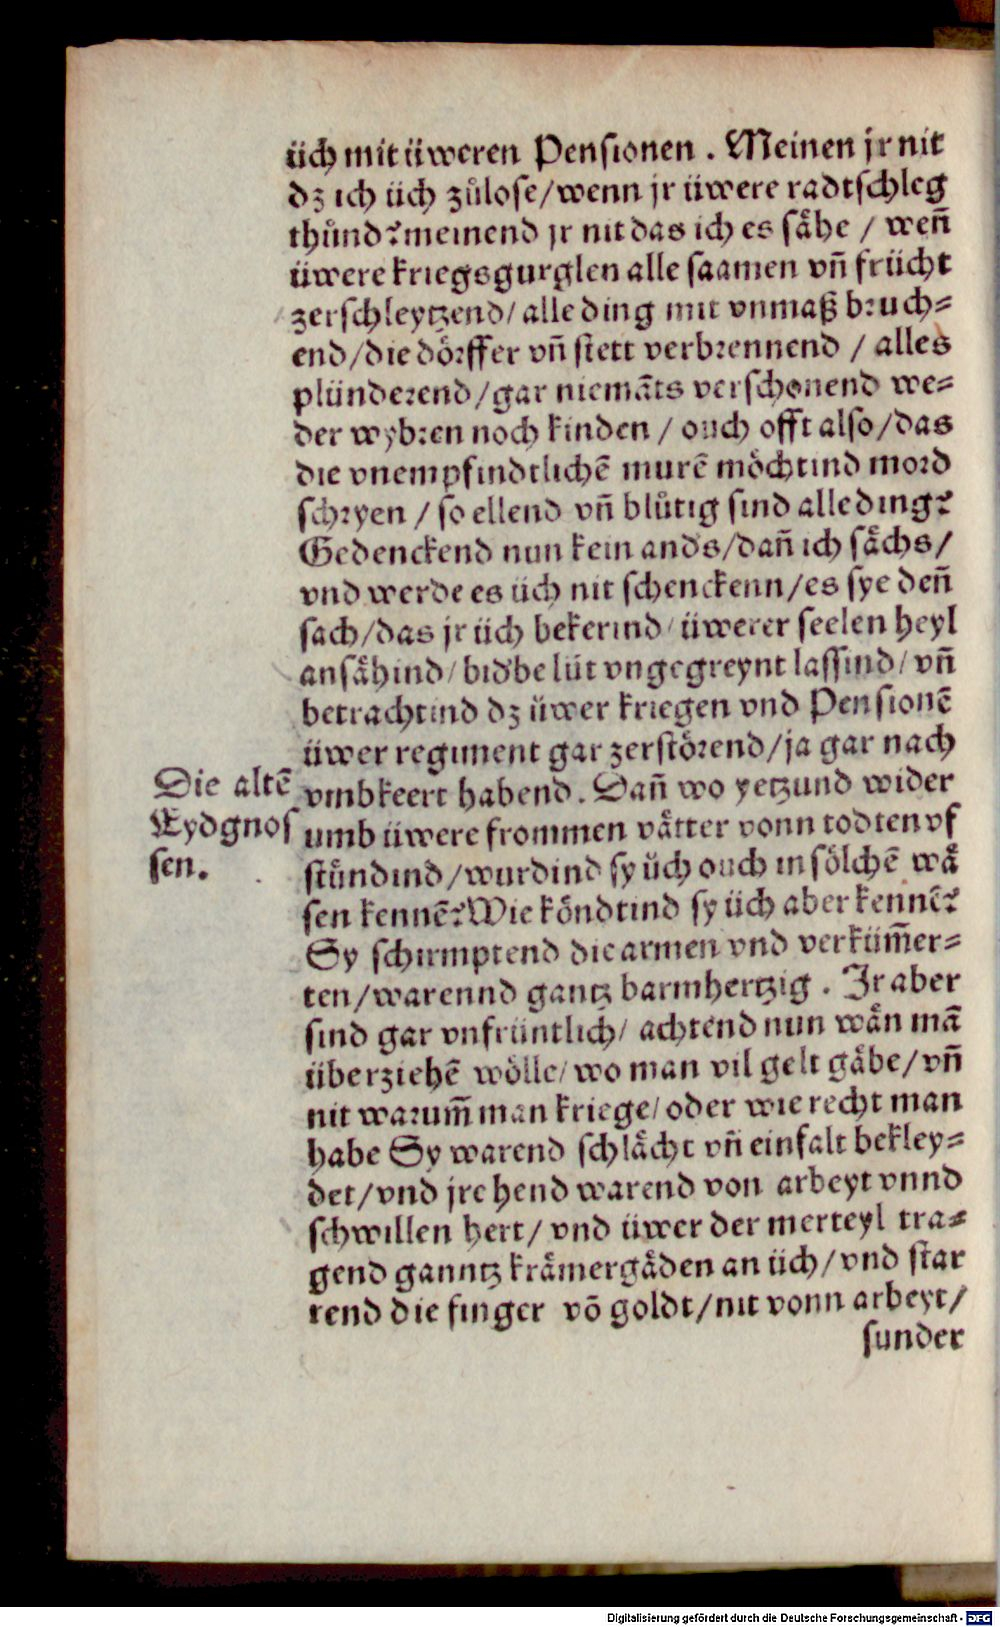 üch mit üweren Pensionen. Meinen jr nit
dz ich üch zůlose/wenn jr üwere radtschleg
thůnd? meinend jr nit das ich es sähe / wen̄
üwere kriegsgurglen alle saamen vn̄ frücht
zerschleytzend/ alle ding mit vnmaß bruch⸗
end/die dörffer vn̄ stett verbrennend / alles
plünderend/gar niemāts verschonend we⸗
der wybren noch kinden / ouch offt also/das
die vnempfindtlichē murē möchtind mord
schryen / so ellend vn̄ blůtig sind alle ding?
Gedenckend nun kein ands/dan̄ ich sächs/
vnd werde es üch nit schenckenn/es sye den̄
sach/das jr üch bekerind/ üwerer seelen heyl
ansähind/ bidbe lüt vngegreynt lassind/ vn̄
betrachtind dz üwer kriegen vnd Pensionē
üwer regiment gar zerstörend/ja gar nach
vmbkeert habend. Dan̄ wo yetzund wider
umb üwere frommen vätter vonn todten vf
stůndind/wurdind sy üch ouch in sölchē wä
sen kennē? Wie köndtind sy üch aber kennē?
Sy schirmptend die armen vnd verküm̄er⸗
ten/warennd gantz barmhertzig. Jr aber
sind gar vnfrüntlich/ achtend nun wän mā
überziehē wölle/ wo man vil gelt gäbe/ vn̄
nit warum̄ man kriege/ oder wie recht man
habe Sy warend schlächt vn̄ einfalt bekley⸗
det/vnd jre hend warend von arbeyt vnnd
schwillen hert/ vnd üwer der merteyl tra⸗
gend ganntz krämergäden an üch/ vnd star
rend die finger vō goldt/nit vonn arbeyt/
sunder
Die altē
Eydgnos
sen.
Digitalisierung gefördert durch die Deutsche Forschungsgemeinschaft - DFG